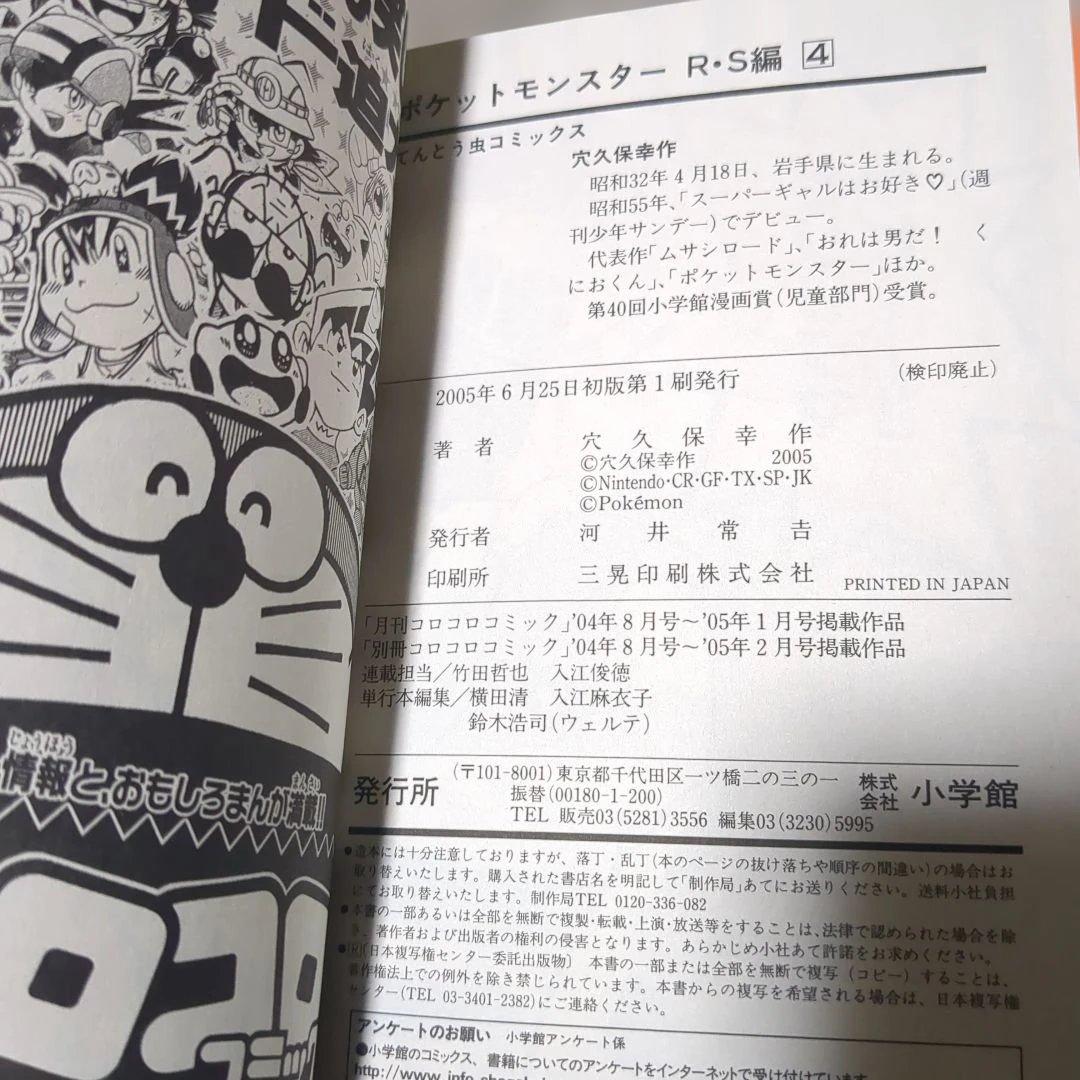 ポケットモンスター R・S編 4
てんとう虫コミックス
穴久保幸作
昭和32年4月18日、岩手県に生まれる。
昭和55年、「スーパーギャルはお好き♡」(週
刊少年サンデー)でデビュー。
代表作「ムサシロード」、「おれは男だ! く
におくん」、「ポケットモンスター」ほか。
第40回小学館漫画賞(児童部門)受賞。
2005年6月25日初版第1刷発行
(検印廃止)
著者 穴久保幸作
©穴久保幸作 2005
©Nintendo・CR・GF・TX・SP・JK
©Pokémon
発行者 河井常吉
印刷所 三晃印刷株式会社
PRINTED IN JAPAN
「月刊コロコロコミック」'04年8月号〜'05年1月号掲載作品
「別冊コロコロコミック」'04年8月号〜'05年2月号掲載作品
連載担当/竹田哲也 入江俊徳
単行本編集/横田清 入江麻衣子
鈴木浩司(ウェルテ)
発行所
(〒101-8001)東京都千代田区一ツ橋二の三の一
振替(00180-1-200)
TEL 販売03(5281)3556 編集03(3230)5995
株式会社 小学館
●造本には十分注意しておりますが、落丁・乱丁(本のページの抜け落ちや順序の間違い)の場合はお
取り替えいたします。購入された書店名を明記して「制作局」あてにお送りください。送料小社負担
にてお取り替えいたします。制作局TEL 0120-336-082
●本書の一部あるいは全部を無断で複製・転載・上演・放送等をすることは、法律で認められた場合を除
き、著作者および出版者の権利の侵害となります。あらかじめ小社あて許諾をお求めください。
●R〔日本複写権センター委託出版物〕 本書の一部または全部を無断で複写(コピー)することは、
著作権法上での例外を除き禁じられています。本書からの複写を希望される場合は、日本複写権
センター(TEL 03-3401-2382)にご連絡ください。
アンケートのお願い 小学館アンケート係
●小学館のコミックス、書籍についてのアンケートをインターネットで受け付けています
http://www.info.sho
じょうほう
まんさい
情報と、おもしろまんが満載!!
ロコロ
コミック